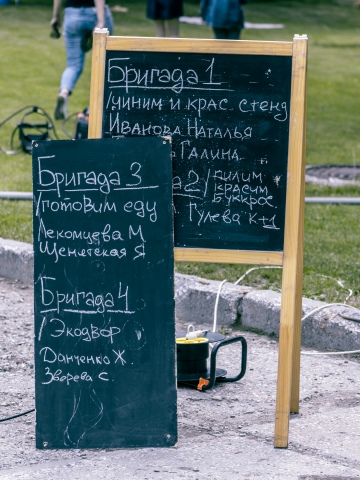 Бригада 1
/чиним и крас. стенд
Иванова Наталья
Галина
2/ пилим
красим
буккрос
Гулева К+1
Бригада 3
/готовим еду
Лекомцева М
Щенятская Я
Бригада 4
/Экодвор
Данченко Ж
Зверева С